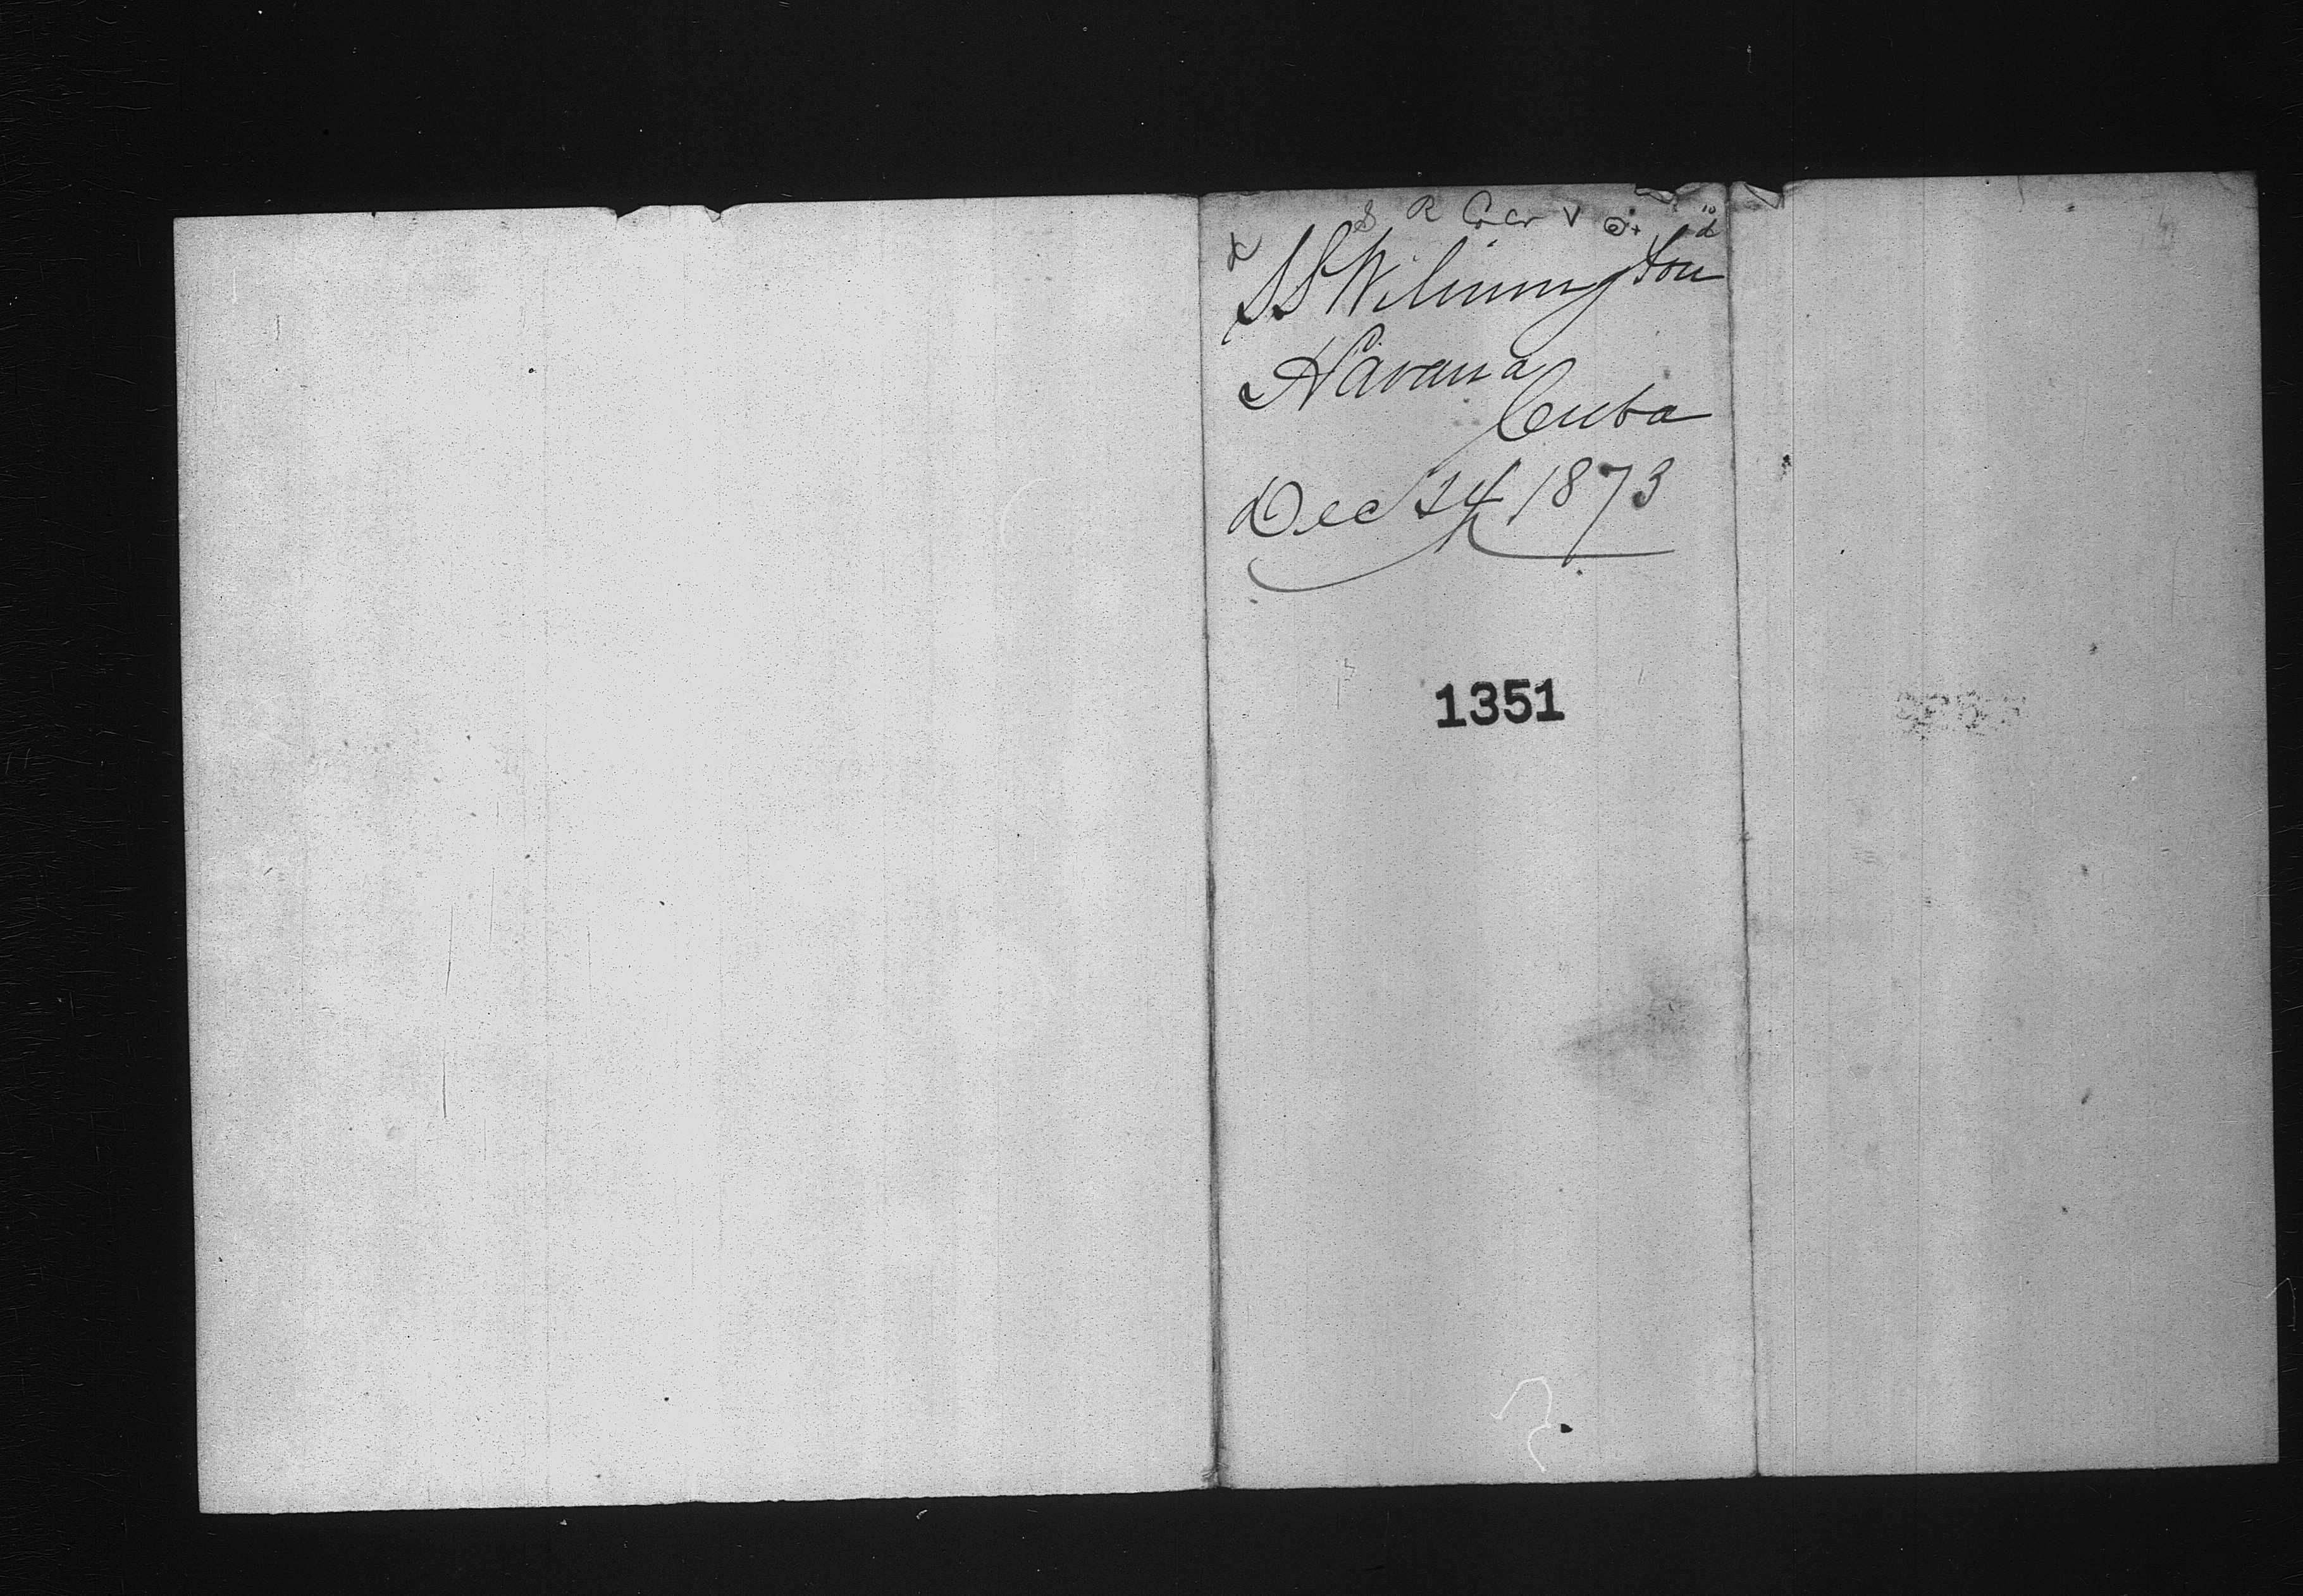 SS Wilmington
Havana
Cuba
Dec 24 1873
1351